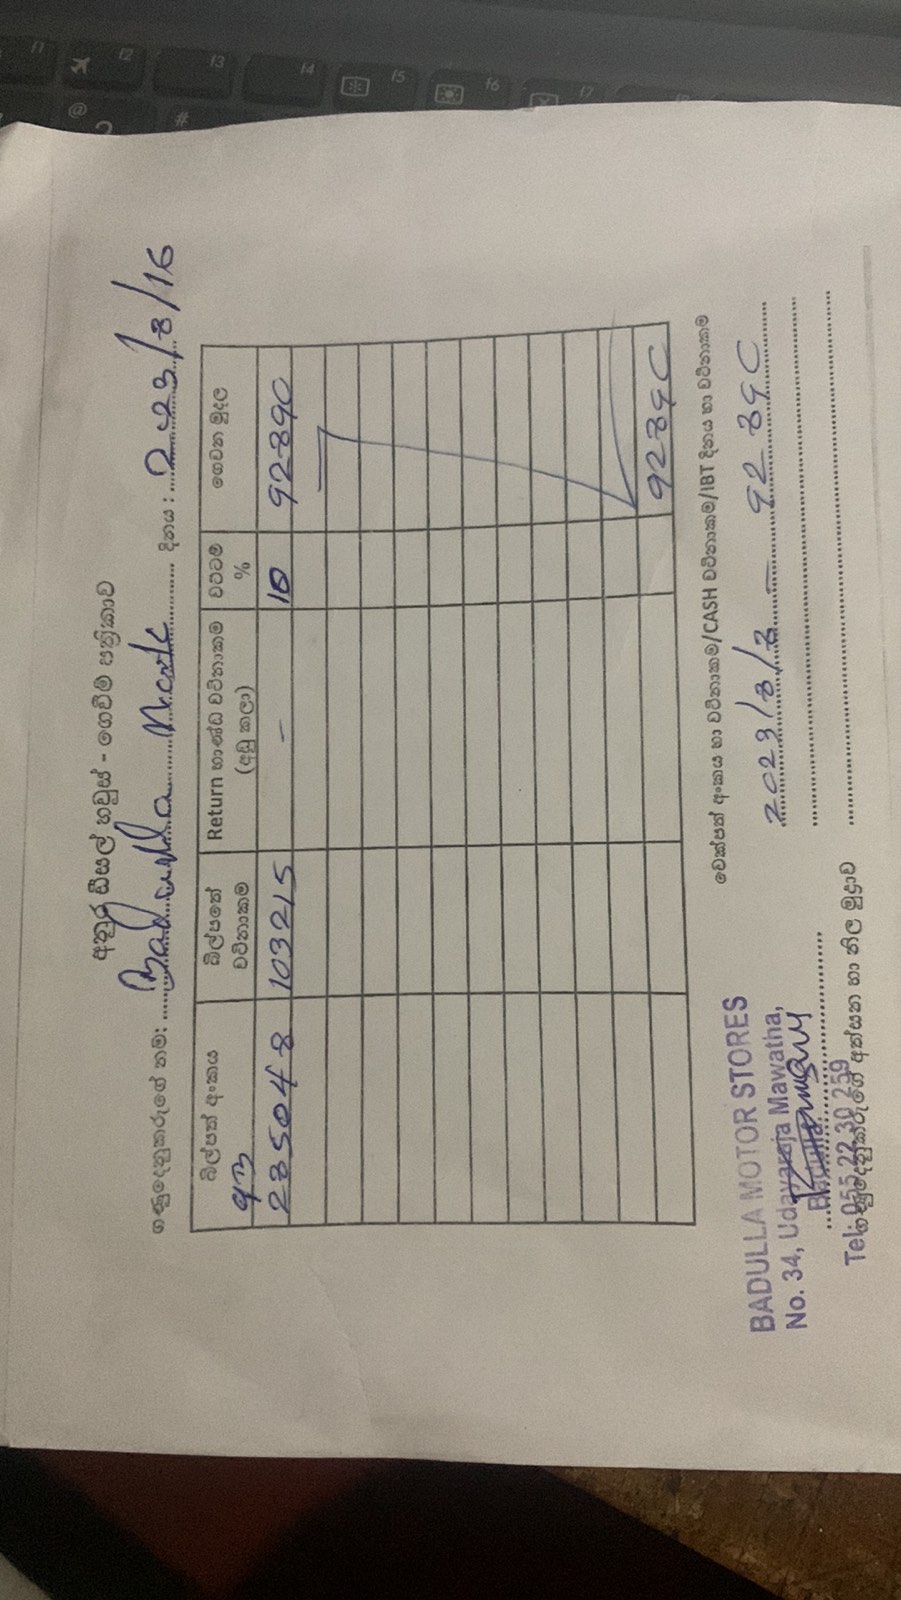 අනුර ඩීසල් හවුස් - ගෙවීම් පත්‍රිකාව
ගණුදෙනුකරුගේ නම: Badulla Motors දිනය: 2023/8/16
බිල්පත් අංකය බිල්පතේ වටිනාකම Return භාණ්ඩ වටිනාකම (අඩු කලා) වට්ටම % ගෙවන මුදල
285048 103215 - 10 92890
92890
චෙක්පත් අංකය හා වටිනාකම/CASH වටිනාකම/IBT දිනය හා වටිනාකම
2023/8/3 - 92890
BADULLA MOTOR STORES
No. 34, Udayaraja Mawatha,
Badulla.
Tel: 055 22 30 259
ගණුදෙනුකරුගේ අත්සන හා නිල මුද්‍රාව